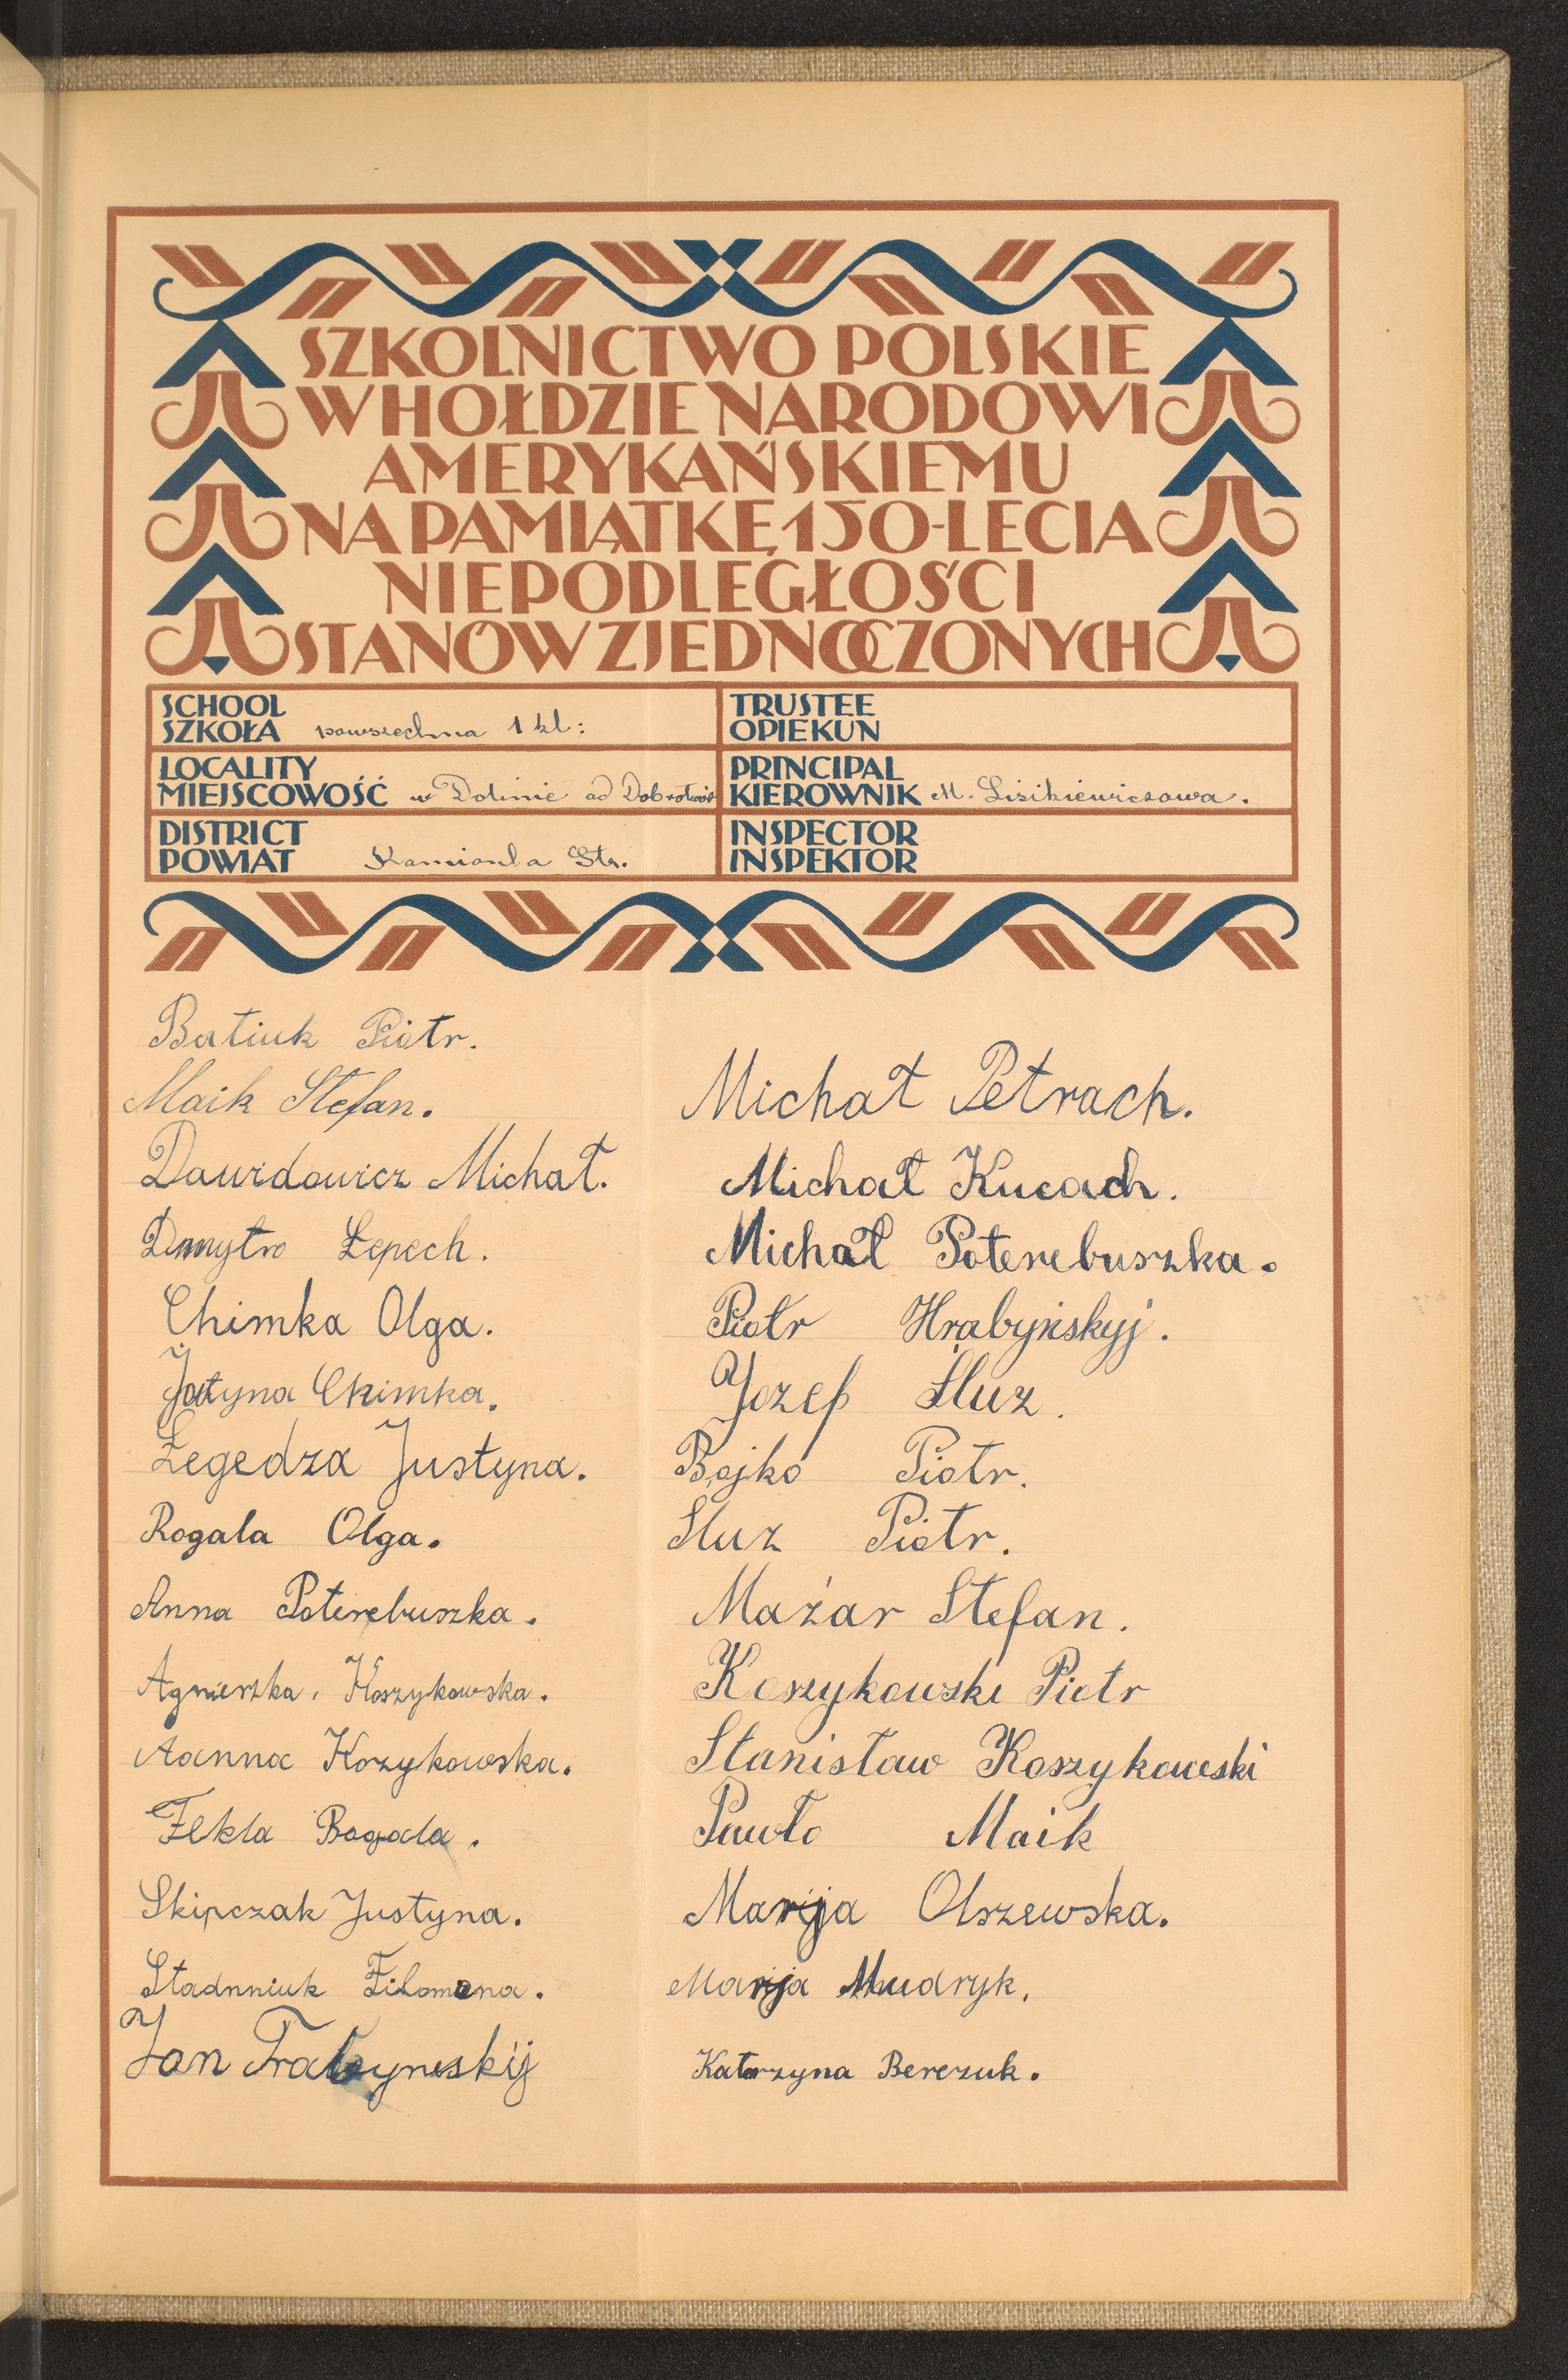 SZKOLNICTWO POLSKIE
W HOŁDZIE NARODOWI
AMERYKAŃSKIEMU
NA PAMIĄTKĘ 150-LECIA
NIEPODLEGŁOŚCI
STANÓW ZJEDNOCZONYCH
SCHOOL
SZKOŁA powszechna 1 kl:
TRUSTEE
OPIEKUN
LOCALITY
MIEJSCOWOŚĆ w Dolinie ad
PRINCIPAL
KIEROWNIK M. Lisikiewiczowa.
DISTRICT
POWIAT Kamionka Str.
INSPECTOR
INSPEKTOR
Batiuk Piotr.
Maik Stefan.
Dawidowicz Michał.
Dmytro Łepech.
Chimka Olga.
Justyna Chimka.
Łegedza Justyna.
Rogala Olga.
Anna Poterebuszka.
Agnieszka. Koszykowska.
Aanna Kozykowska.
Tekla
Skipczak Justyna.
Stadnniuk Filomena.
Jan
Michał Petrach.
Michał Kucach.
Michał Poterebuszka.
Piotr Hrabyńskyj.
Jozef Sluz.
Bojko Piotr.
Sluz Piotr.
Mażar Stefan.
Koszykowski Piotr
Stanisław Koszykowski
Pawło Maik
Marija Olszewska.
Marija Mudryk.
Katarzyna Berezuk.